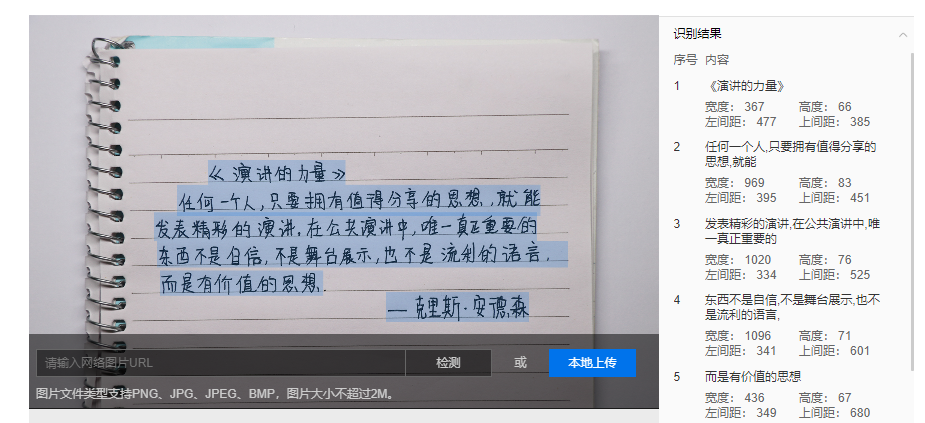 《演讲的力量》
任何一个人,只要拥有值得分享的思想,就能
发表精彩的演讲,在公共演讲中,唯一真正重要的
东西不是自信,不是舞台展示,也不是流利的语言,
而是有价值的思想.
——克里斯·安德森
请输入网络图片URL 检测 或 本地上传
图片文件类型支持PNG、JPG、JPEG、BMP，图片大小不超过2M。
识别结果
序号 内容
1 《演讲的力量》
宽度： 367 高度： 66
左间距： 477 上间距： 385
2 任何一个人,只要拥有值得分享的
思想,就能
宽度： 969 高度： 83
左间距： 395 上间距： 451
3 发表精彩的演讲,在公共演讲中,唯
一真正重要的
宽度： 1020 高度： 76
左间距： 334 上间距： 525
4 东西不是自信,不是舞台展示,也不
是流利的语言,
宽度： 1096 高度： 71
左间距： 341 上间距： 601
5 而是有价值的思想
宽度： 436 高度： 67
左间距： 349 上间距： 680